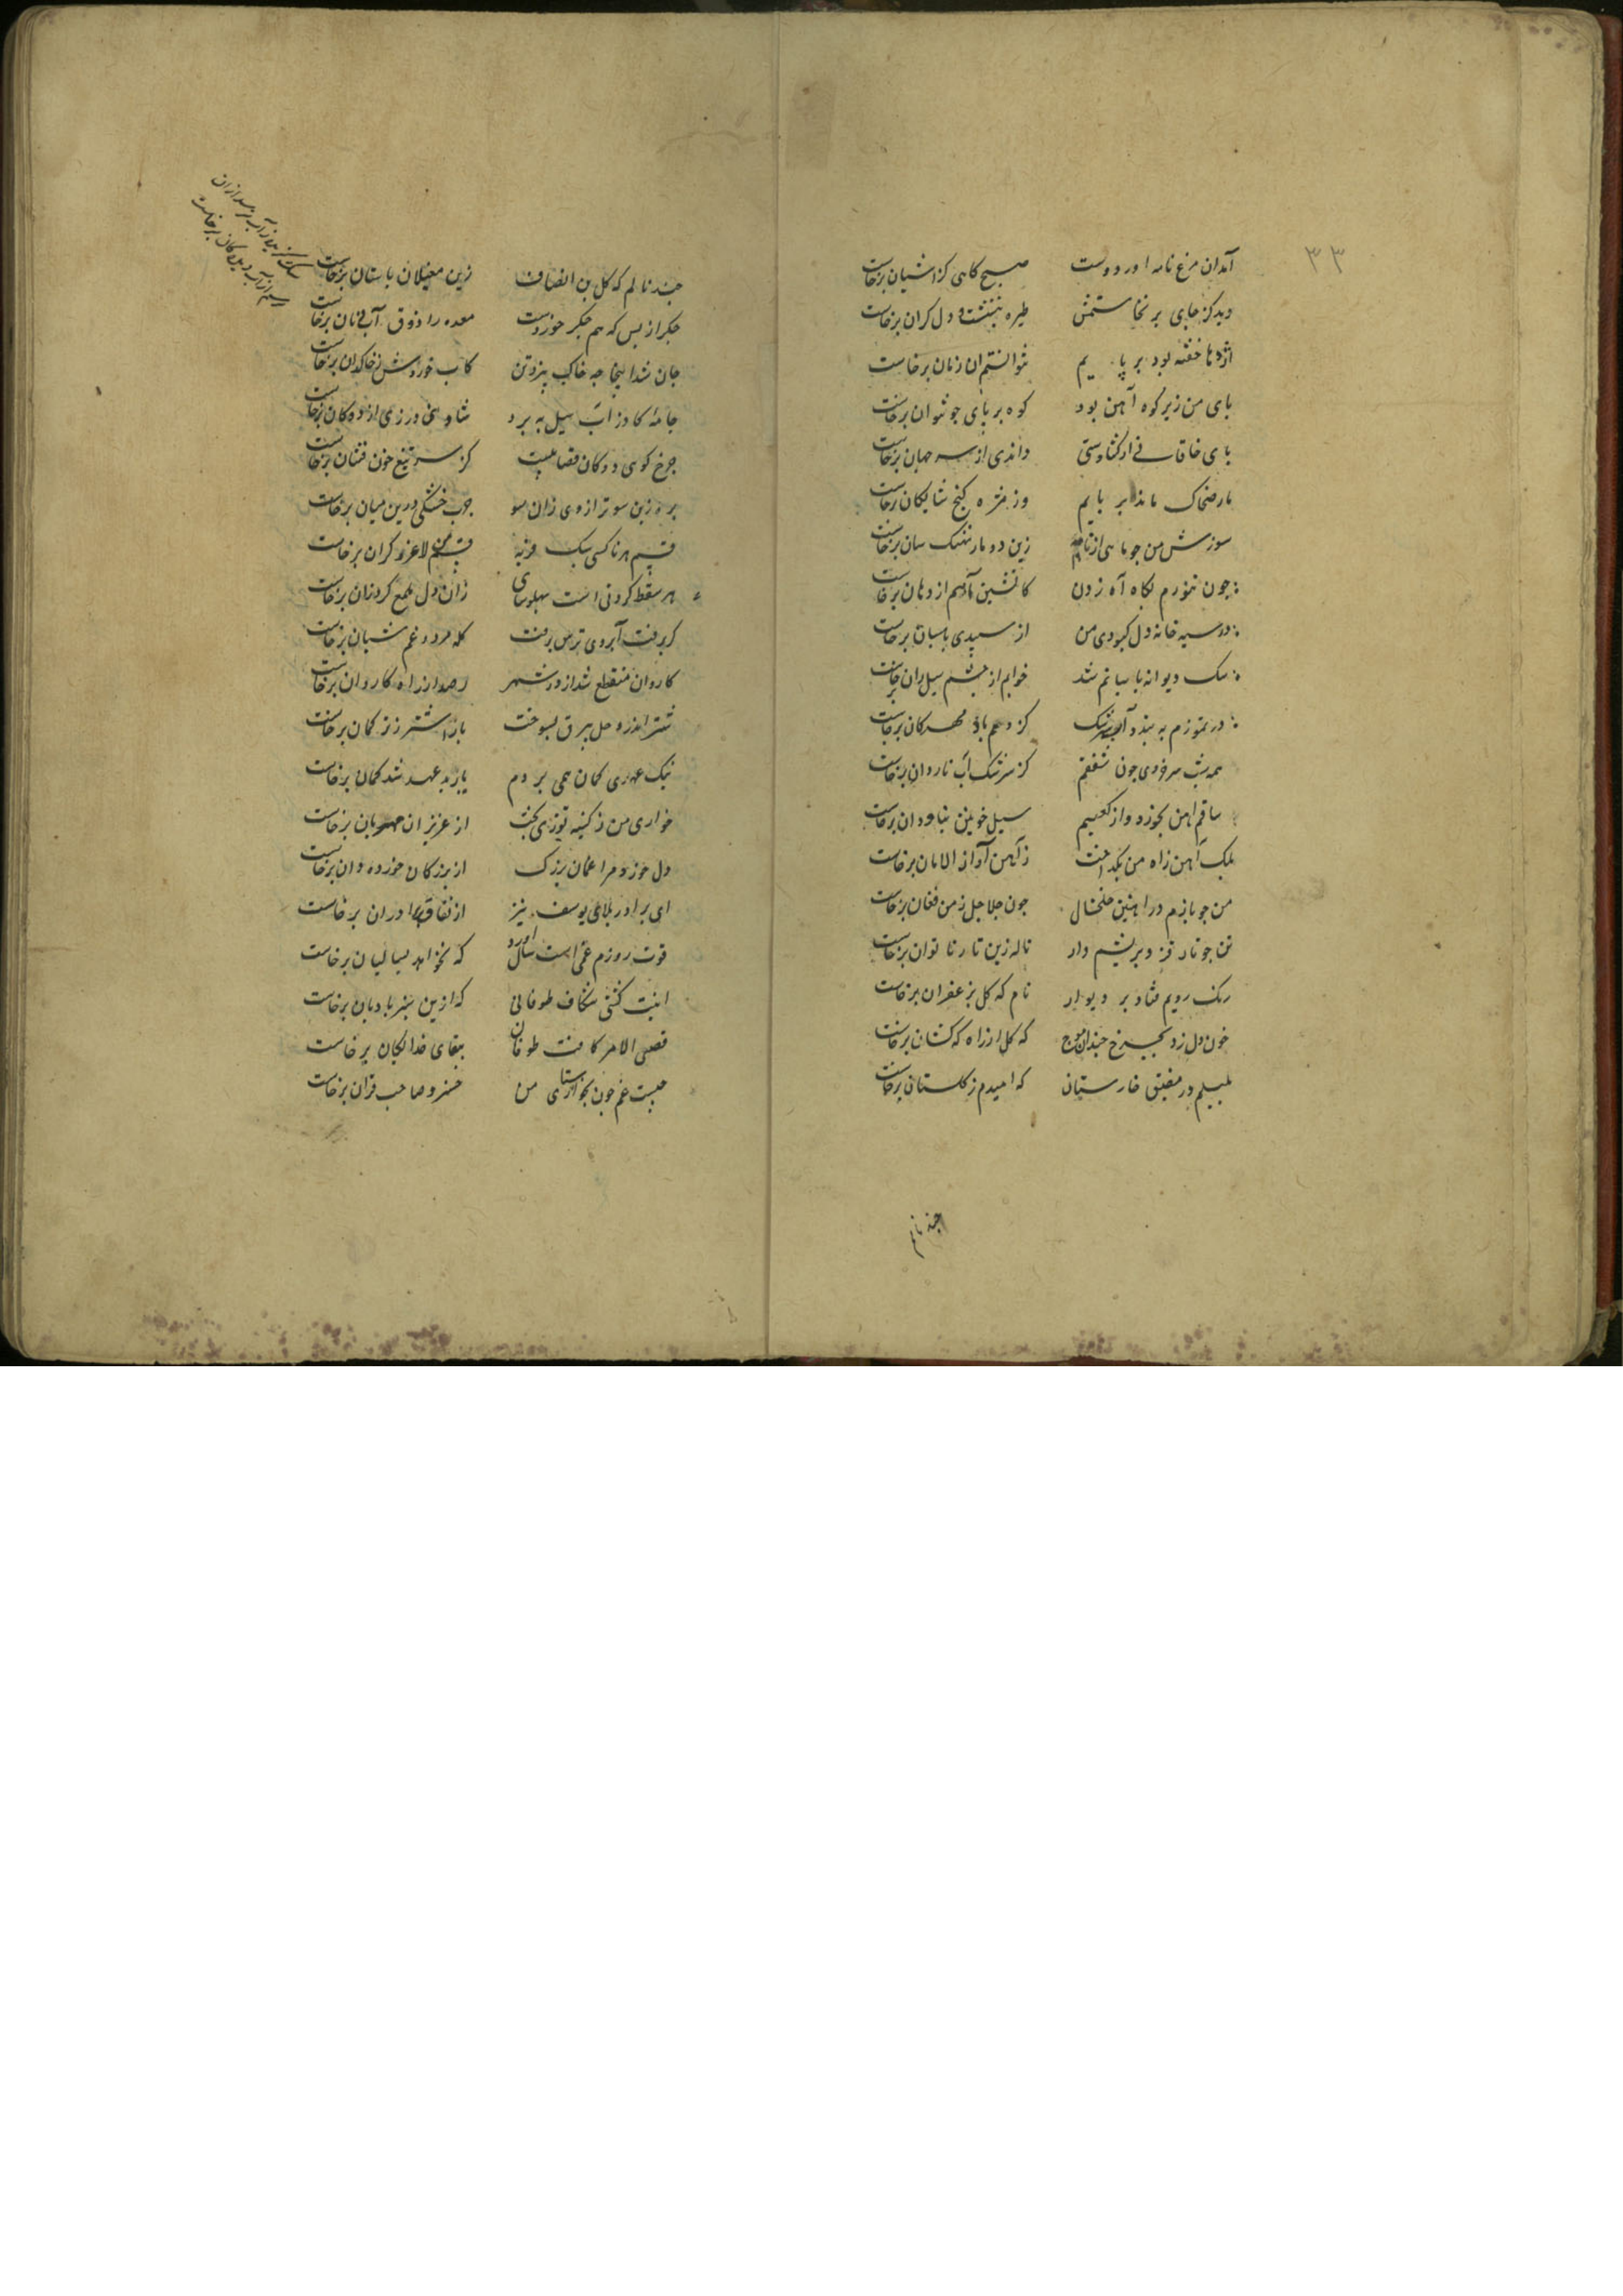 ۳۳
آمدان مرغ نامه اور دوست صبح کاهی کز اشیان برخاست
دید کز جای بر نخاستمش طیره بنشست و دل کران برخاست
اژدها خفته بود بر پایم نتوانستم ان زمان برخاست
بای من زیر کوه آهن بود کوه بر بای جو نتوان برخاست
بای خاقانی ار کشادستی داندی از سر جهان برخاست
مار ضحاک ماند بر بایم وز مژه کنج شایکان برخاست
سوزش من جو ماهی از تابه زین دو مار نهنک سان برخاست
جون تنورم بکاه آه زدن کاتشین مارم از دهان برخاست
در سیه خانه دل کبودی من از سپیدی باسبان برخاست
سک دیوانه باسبانم شد خوابم از چشم سیل ران برخاست
در تموزم به بندد آب سرشک کز دمم باد مهرکان برخاست
همه شب سرخ روی جون شفقم کز سرشک آب ناردان برخاست
ساقم اهن بخورد و از کعبیم سیل خونین بناودان برخاست
بلک آهن ز آه من بکداخت ز آهن آواز الامان برخاست
من جو بازم در اهنین خلخال جون جلاجل ز من فغان برخاست
تن جو تار قز و بریشم وار ناله زین تار ناتوان برخاست
رنک رویم فتاد بر دیوار نام که کل بزعفران برخاست
خون دل زد بجرخ جندان موج که کل از راه کهکشان برخاست
بلبلم در مضیق خارستان که امیدم ز کلستان برخاست
جند نالم
جند نالم که کل بن انصاف زین مغیلان باستان برخاست
جکر از بس که هم جکر خوردست معده را ذوق آب و نان برخاست
جان شد اینجا جه خاک بیزد تن کاب خوردش ز خاکدان برخاست
جامه کازر آب سیل به برد شاد منی درزی از دوکان برخاست
جرخ کوی دوکان قصابیست کز سر تیغ خون فشان برخاست
بره زین سو ترازوی زان سو جرب خشکی درین میان برخاست
قسم هر ناکسی سبک فربه قسم من لاغر و کران برخاست
هر سقط کردنی است بهلوسای زان دل طمع کردران برخاست
کر برفت آبروی ترس برفت کله مرد و غم شبان برخاست
کاروان منقطع شد از در شهر رصد از راه کاروان برخاست
شتر اندر وحل ببرق بسوخت باز اشتر ز ترکمان برخاست
نیک عهدی کمان همی بردم یار بد عهد شد کمان برخاست
خواری من ز کینه توزی بخت از عزیزان مهربان برخاست
دل خرد مرا غمان بزرک از بزرکان خرده دان برخاست
ای برادر بلای یوسف نیز از نفاق برادران برخاست
قوت روزم غمی است سال آورد که نخواهد بسالیان برخاست
اینت کشتی شکاف طوفانی که ازین سبز بادبان برخاست
قضی الامر کافت طوفان ببقای خدایکان برخاست
جیست غم جون بخواستاری من خسرو صاحب قران برخاست